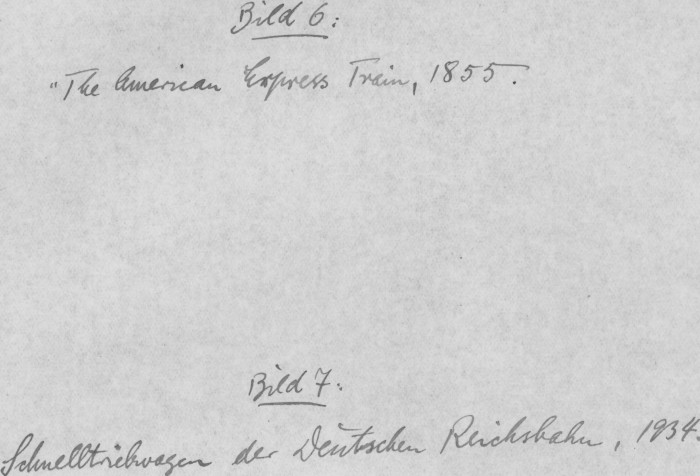 Bild 6:
"The American Express Train, 1855.
Bild 7:
Schnelltriebwagen der Deutschen Reichsbahn, 1934